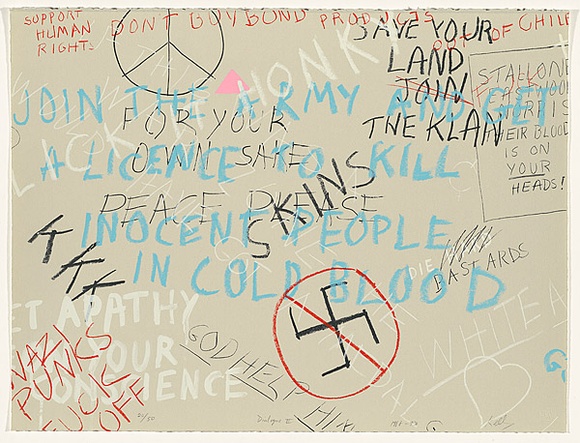 SUPPORT
HUMAN
RIGHTS
DONT BUY BOND PRODUCTS
OUT OF CHILE
SAVE YOUR
LAND
JOIN
THE KLAN
HONKY
STALLONE
EASTWOOD
NORRIS
THEIR BLOOD
IS ON
YOUR
HEADS!
JOIN THE ARMY AND GET
A LICENCE TO KILL
INOCENT PEOPLE
IN COLD BLOOD
FOR YOUR
OWN SAKE
PEACE PLEASE
SKINS
KKK
DIE
BASTARDS
WHITE
ET APATHY
YOUR
CONSCIENCE
NAZI
PUNKS
FUCK
OFF
GOD HELP